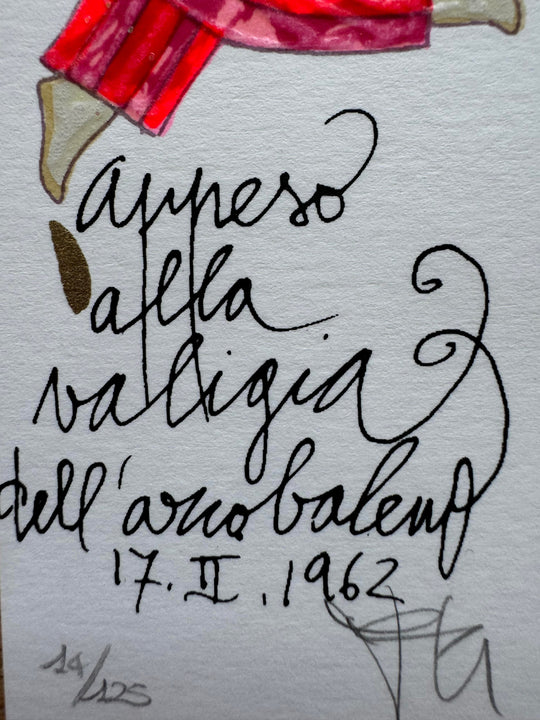 appeso
alla
valigia
dell'arcobaleno
17.II.1962
14/125